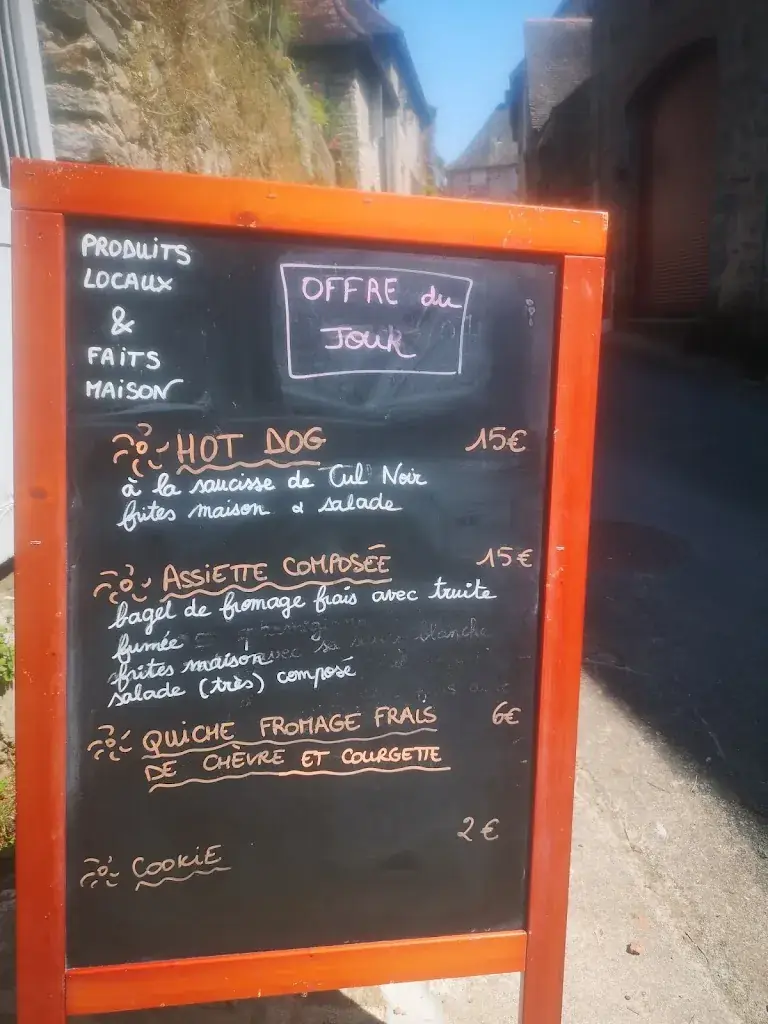 PRODUITS
LOCAUX
&
FAITS
MAISON
OFFRE du
JOUR
HOT DOG 15€
à la saucisse de Cul Noir
frites maison & salade
ASSIETTE COMPOSÉE 15€
bagel de fromage frais avec truite
fumée
frites maison
salade (très) composé
QUICHE FROMAGE FRAIS 6€
DE CHÈVRE ET COURGETTE
2€
COOKIE